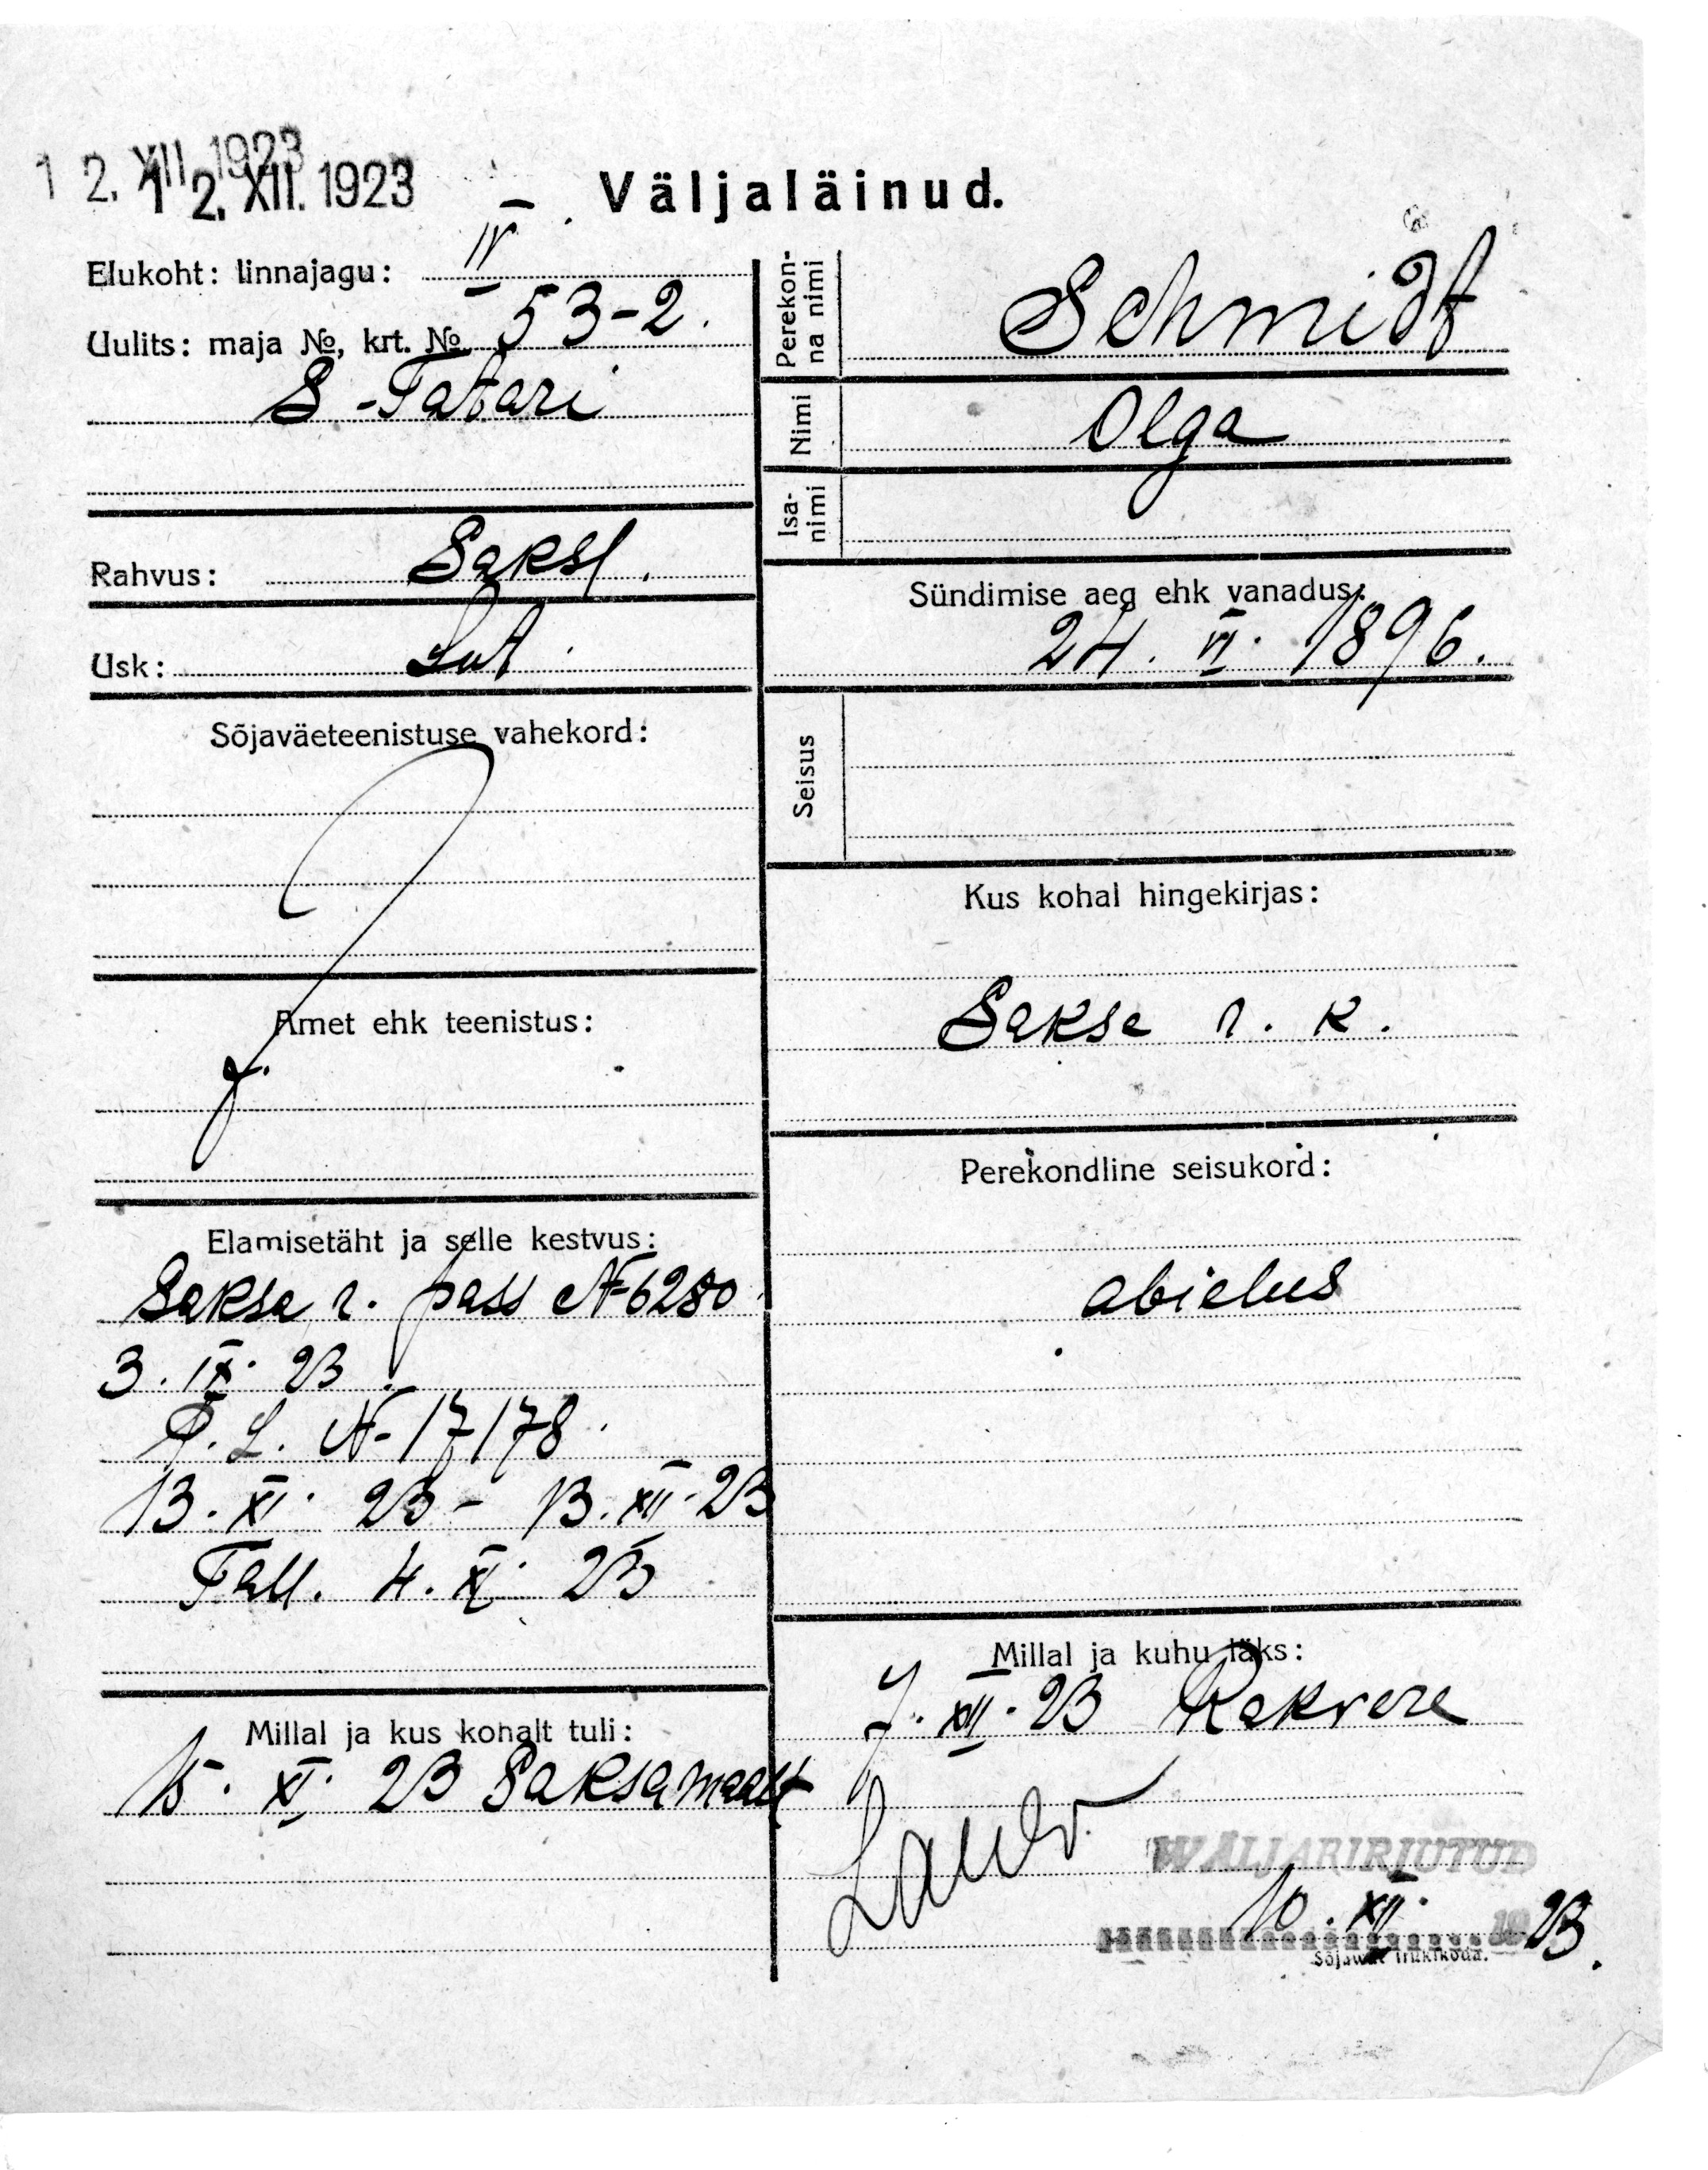 12. XII. 1923
12. XII. 1923
Väljaläinud.
Elukoht: linnajagu: IV
Uulits: maja №, krt. № 53-2.
S-Tatari
Rahvus: Saksl.
Usk: Lut.
Sõjaväeteenistuse vahekord:
Amet ehk teenistus:
Elamisetäht ja selle kestvus:
Saksa r. pass № 6280
3. IX. 23.
A. L. № 17178.
13. XI. 23 - 13. XII. 23
Tall. 4. XI. 23
Millal ja kus kohalt tuli:
15. XI. 23 Saksamaalt
Perekon-
na nimi
Schmidt
Nimi
Olga
Isa-
nimi
Sündimise aeg ehk vanadus:
24. VI. 1896.
Seisus
Kus kohal hingekirjas:
Sakse r. k.
Perekondline seisukord:
abielus
Millal ja kuhu läks:
7. XII. 23 Rakvere
WÄLJAKIRJUTUD
10. XII. 1923.
Sõjawäe trükikoda.